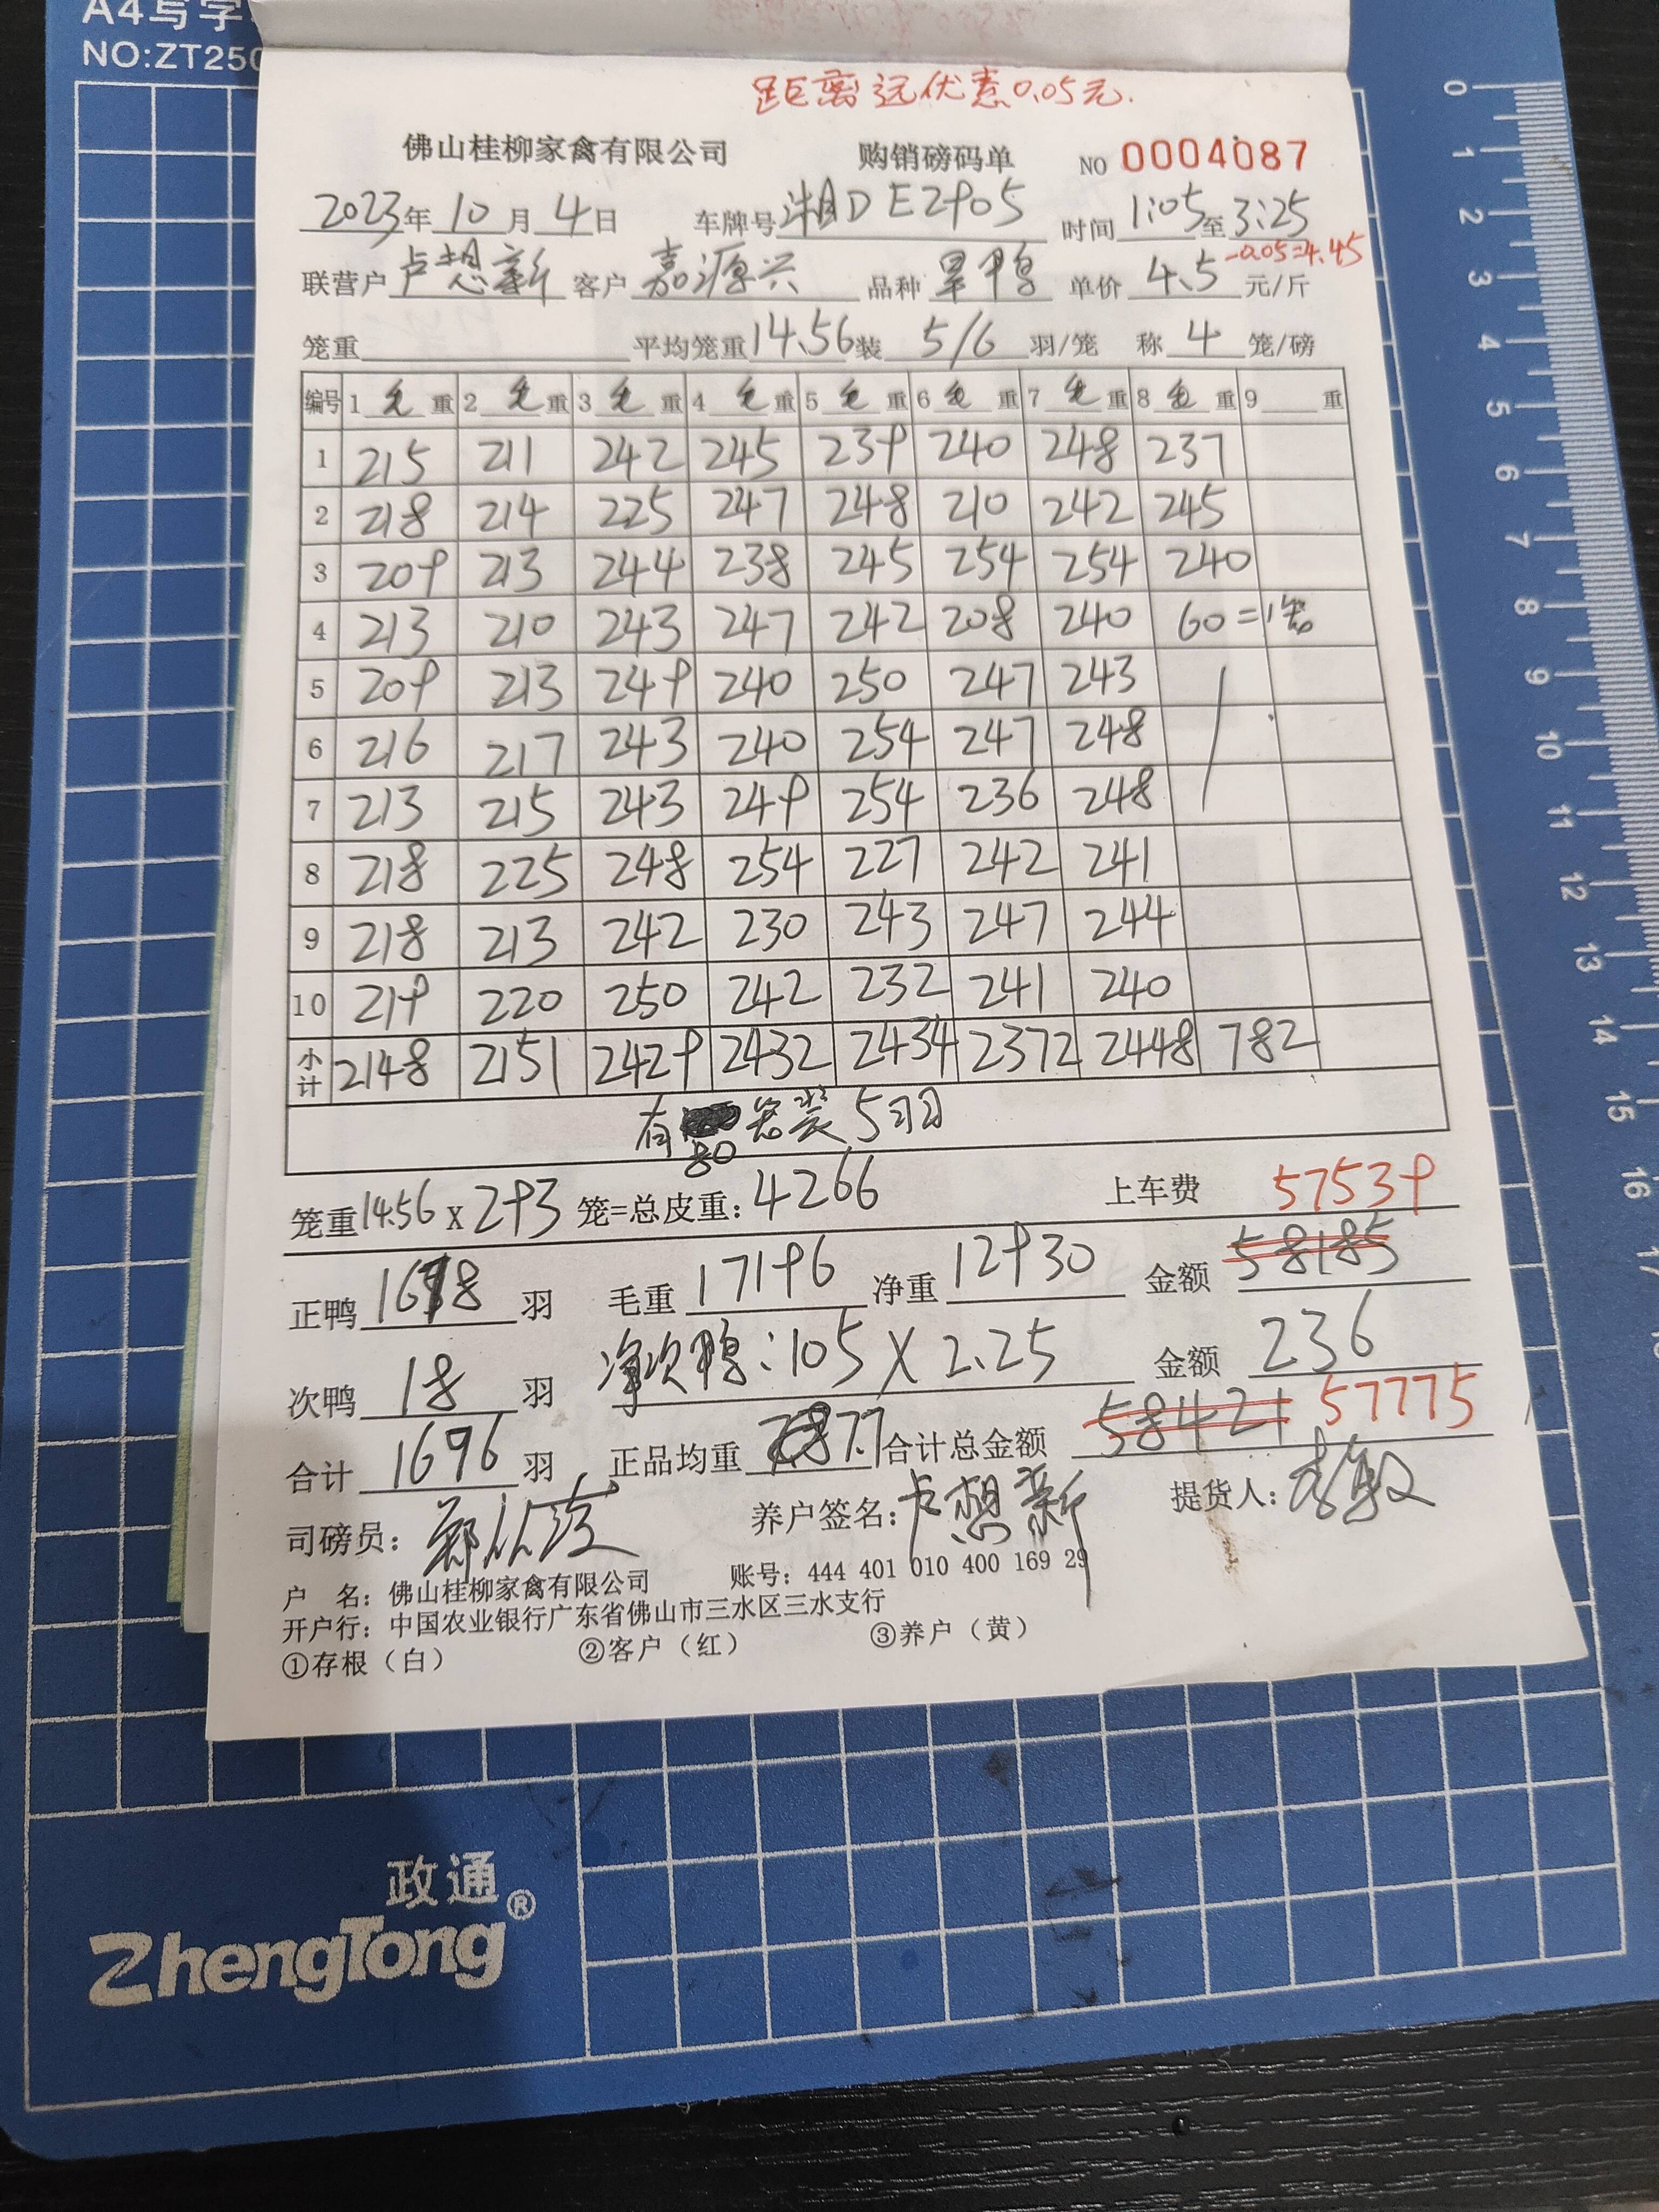 A4写字
NO:ZT250
距离远优惠0.05元.
佛山桂柳家禽有限公司 购销磅码单 NO 0004087
2023年 10 月 4 日 车牌号 湘D E2905 时间 1:05 至 3:25
-0.05=4.45
联营户 卢想新 客户 嘉源兴 品种 旱鸭 单价 4.5 元/斤
笼重 平均笼重 14.56 装 5/6 羽/笼 称 4 笼/磅
编号 1 毛 重 2 毛 重 3 毛 重 4 毛 重 5 毛 重 6 毛 重 7 毛 重 8 毛 重 9 重
1 215 211 242 245 239 240 248 237
2 218 214 225 247 248 210 242 245
3 209 213 244 238 245 254 254 240
4 213 210 243 247 242 208 240 60=1笼
5 209 213 249 240 250 247 243
6 216 217 243 240 254 247 248
7 213 215 243 249 254 236 248
8 218 225 248 254 227 242 241
9 218 213 242 230 243 247 244
10 219 220 250 242 232 241 240
小计 2148 2151 2429 2432 2434 2372 2448 782
有 80 笼装5羽
笼重 14.56 x 293 笼=总皮重: 4266 上车费 57539
正鸭 1678 羽 毛重 17196 净重 12930 金额 58185
次鸭 18 羽 净次鸭:105 X 2.25 金额 236
合计 1696 羽 正品均重 7.7 合计总金额 58421 57775
司磅员: 养户签名: 卢想新 提货人:
户 名: 佛山桂柳家禽有限公司 账号: 444 401 010 400 169 29
开户行: 中国农业银行广东省佛山市三水区三水支行
①存根(白) ②客户(红) ③养户(黄)
0
1
2
3
4
5
6
7
8
9
10
11
12
13
14
15
16
政通®
ZhengTong